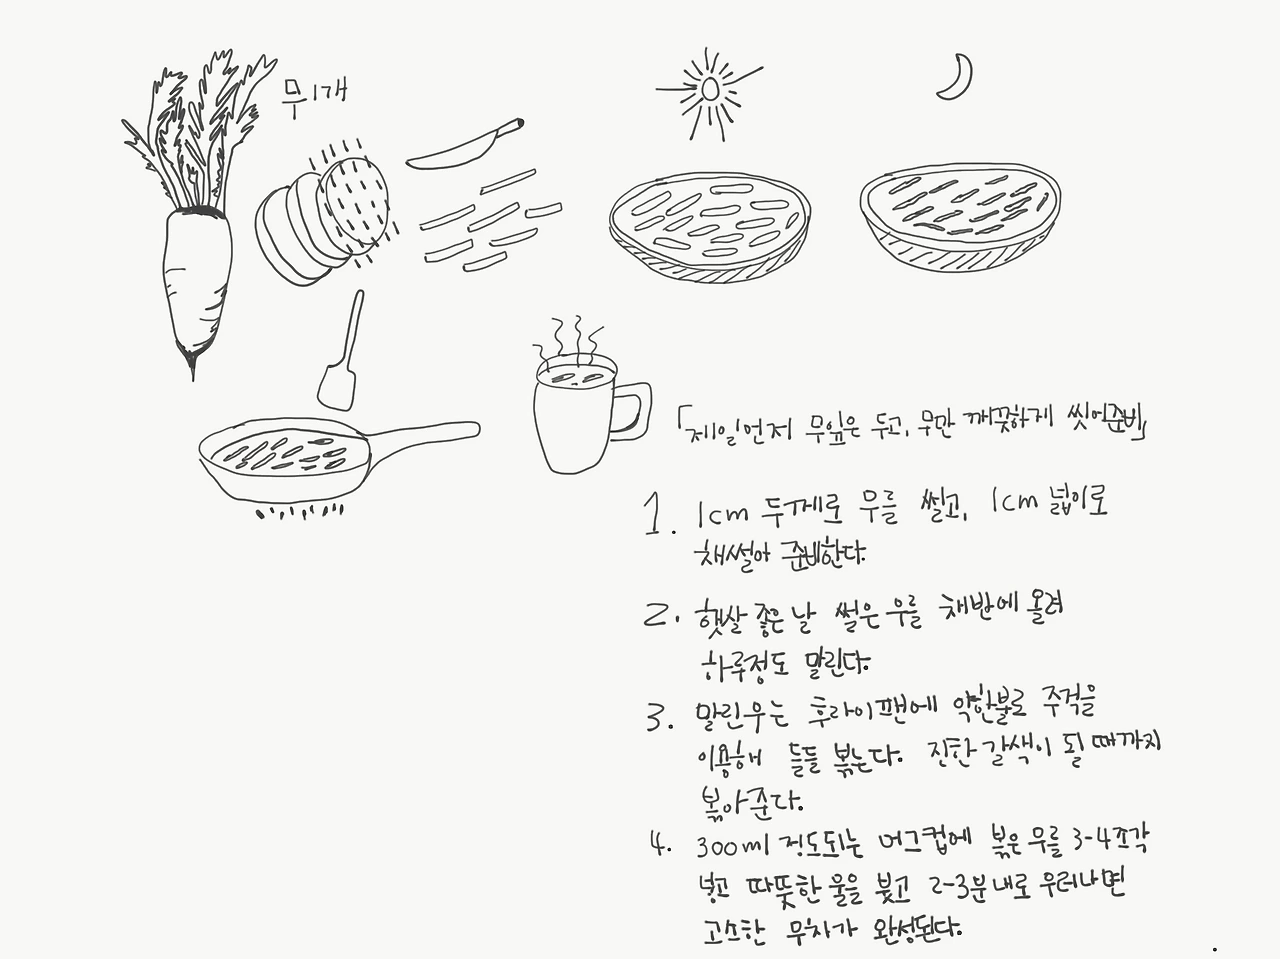 무 1개
「제일먼저 무잎은 두고, 무만 깨끗하게 씻어준비」
1. 1cm 두께로 무를 썰고, 1cm 넓이로
채썰아 준비한다.
2. 햇살 좋은 날 썰은 무를 채반에 올려
하루정도 말린다.
3. 말린무는 후라이팬에 약한불로 주걱을
이용해 들들 볶는다. 진한 갈색이 될 때까지
볶아준다.
4. 300ml 정도되는 머그컵에 볶은 무를 3-4조각
넣고 따뜻한 물을 붓고 2-3분내로 우러나면
고소한 무차가 완성된다.